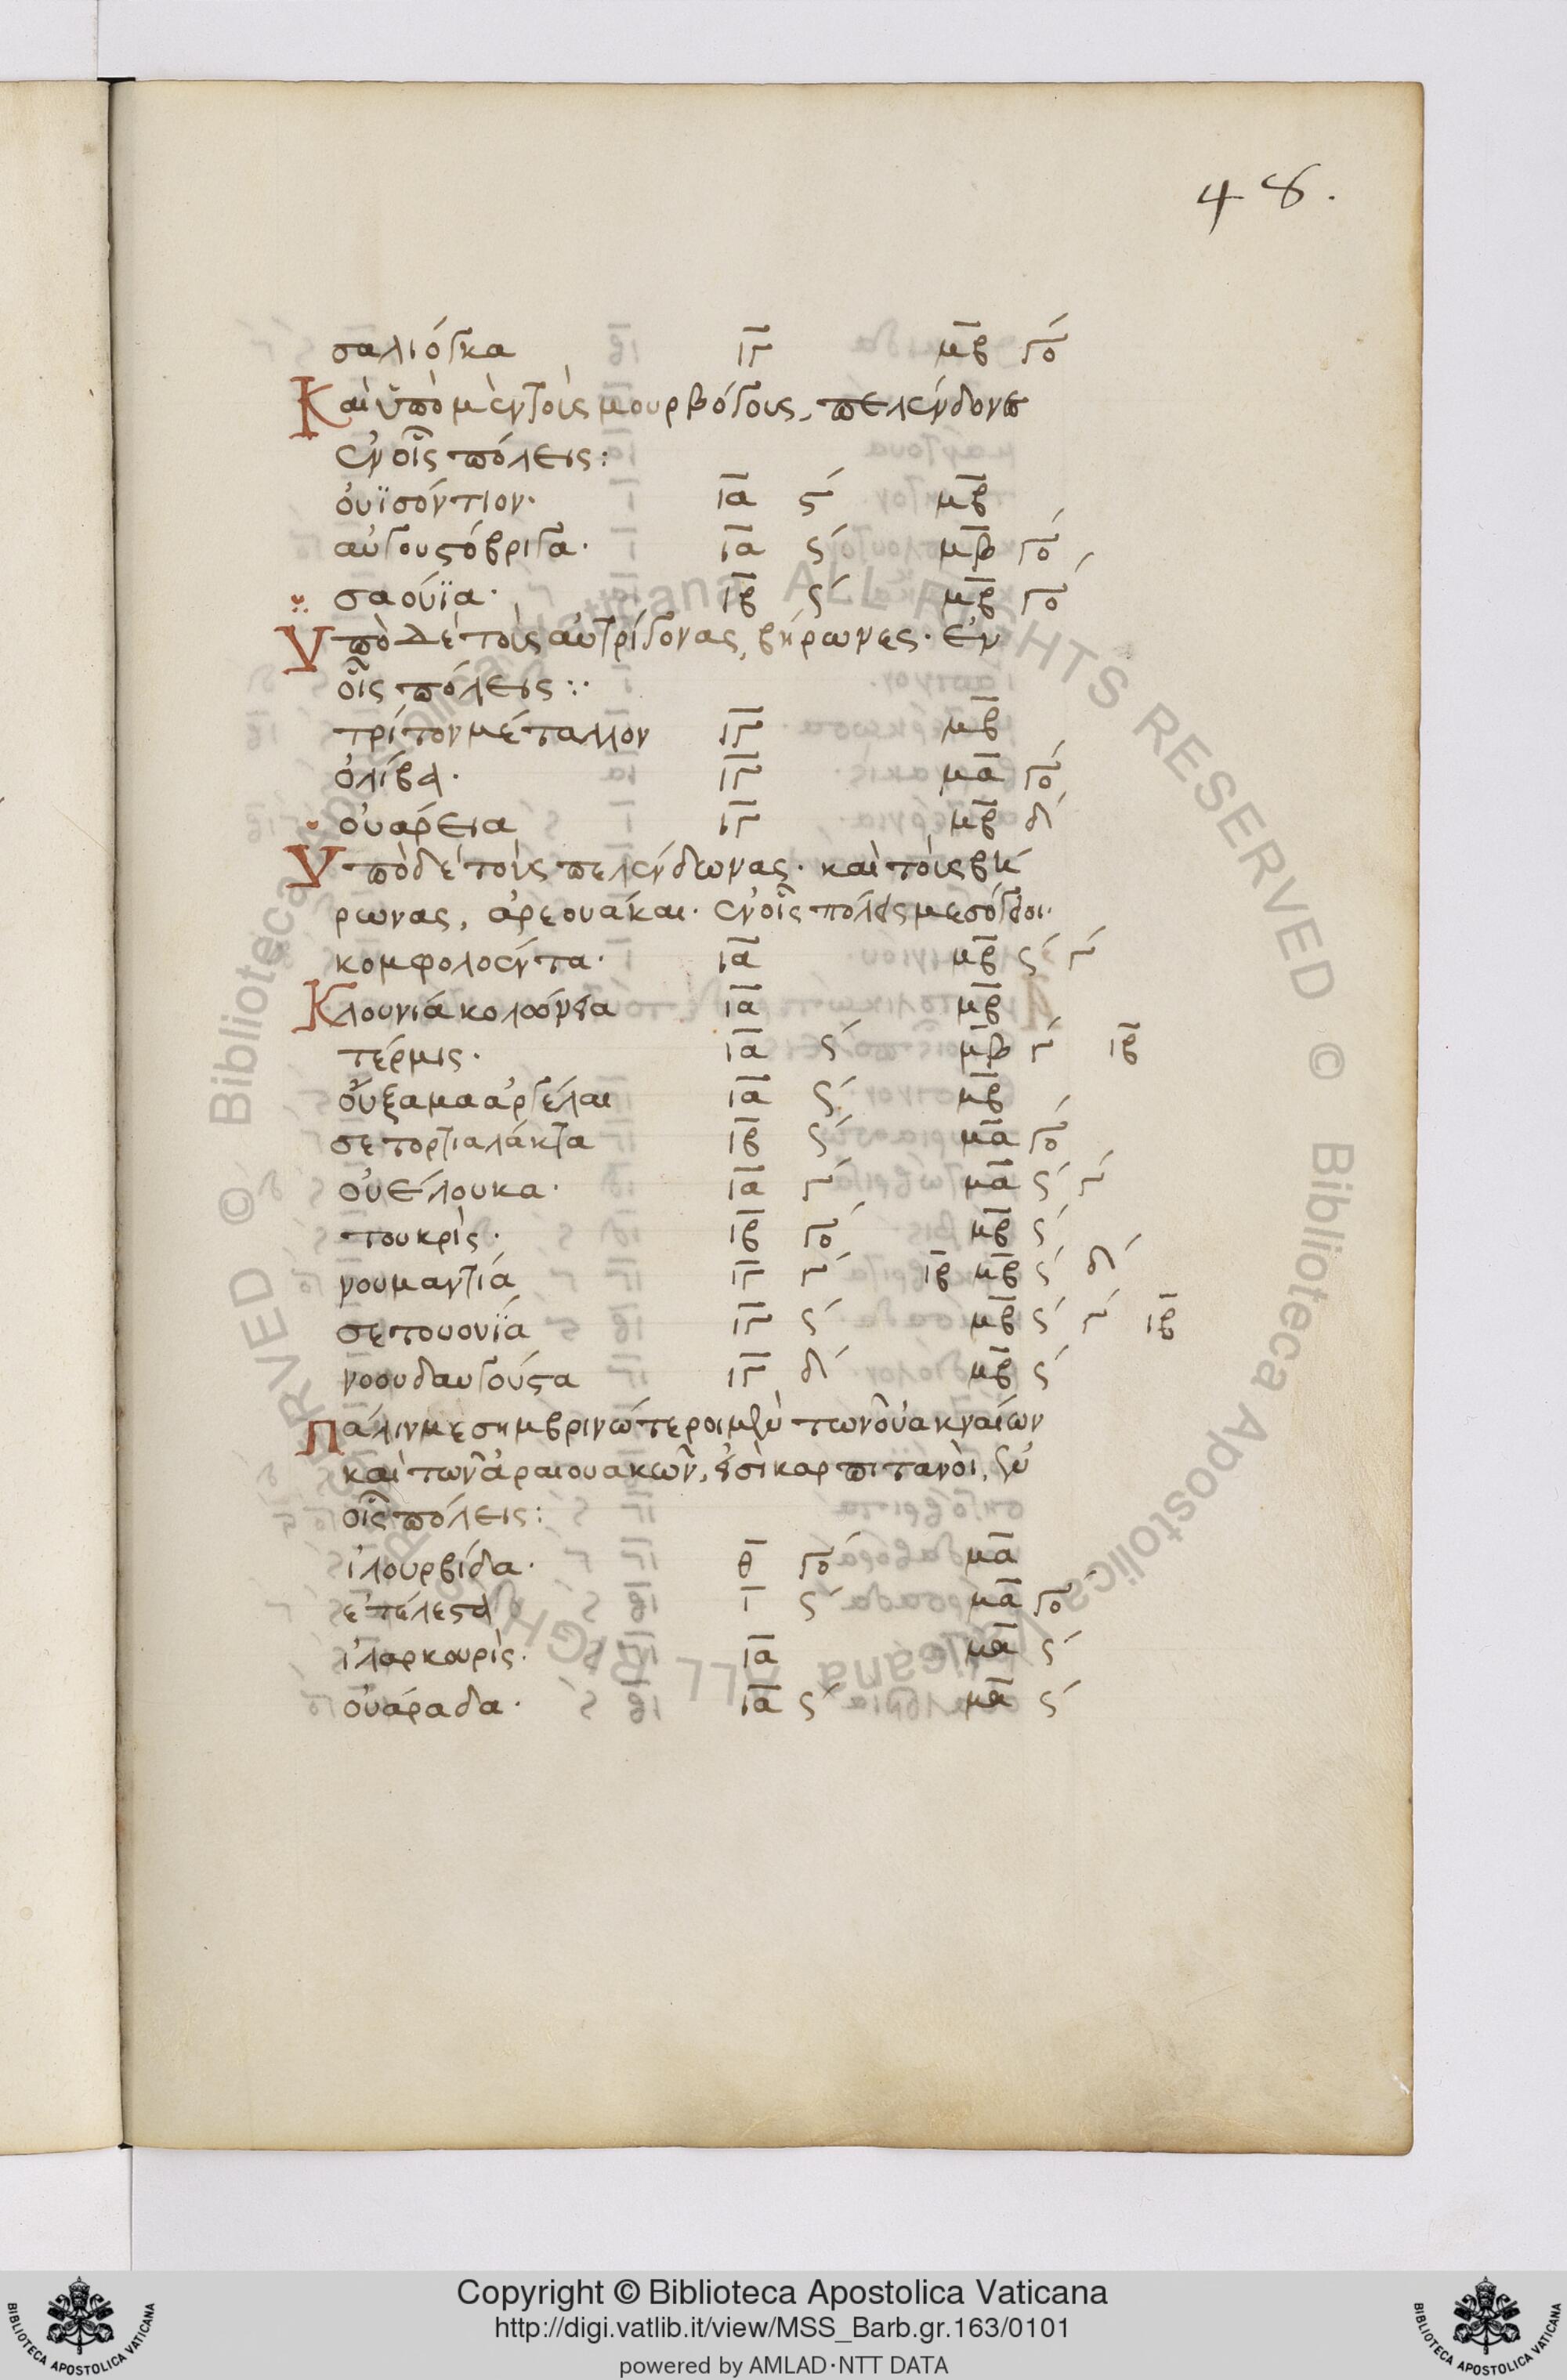 48.
σαλιόγκα ιγ μβ γο
Καὶ ὑπὸ μὲν τοὺς μουρβόγους, πελένδονες
ἐν οἷς πόλεις:
ὀυϊσόντιον· ια ϛ μβ
αὐγουστόβριγα· ια ϛ μβ γο
σαούϊα· ιβ ϛ μβ γο
Υπὸ δὲ τοὺς αὐτρίγονας, βήρωνες· ἐν
οἷς πόλεις:
τρίτον μέταλλον ιγ μβ
ὀλίβα· ιγ μα γο
ὀυάρεια ιγ μβ δ
Υπὸ δὲ τοὺς πελένδωνας· καὶ τοὺς βή
ρωνας, ἀρεουάκαι· ἐν οἷς πόλεις μεσόγειοι·
κομφολοέντα· ια μβ ϛ γ
Κλουνιά κολωνεία ια μβ
τέρμις· ια ϛ μβ γ ιβ
οὔξαμα ἀργέλαι ια ϛ μβ
σετορτιαλάκτα ιβ ϛ μα γο
ὀυέλουκα· ια γ μα ϛ γ
τουκρὶς· ιβ γο μβ ϛ
νουμαντιά ιγ γ ιβ μβ ϛ δ
σετουονϊά ιγ ϛ μβ ϛ γ ιβ
νοουδαυγούστα ιγ δ μβ ϛ
Πάλιν μεσημβρινώτεροι μὲν τῶν ὀυακναίων
καὶ τῶν ἀραιουακῶν, εἰσὶ καρπιτανοὶ, ἐν
οἷς πόλεις:
ἰλουρβίδα· θ γο μα
ἐτέλεστα ι ϛ μα γο
ἰλαρκουρὶς· ια μα ϛ
ὀυάραδα· ια ϛ μα ϛ
Biblioteca Apostolica Vaticana ALL RIGHTS RESERVED ©
Copyright © Biblioteca Apostolica Vaticana
http://digi.vatlib.it/view/MSS_Barb.gr.163/0101
powered by AMLAD·NTT DATA
BIBLIOTECA APOSTOLICA VATICANA
BIBLIOTECA APOSTOLICA VATICANA